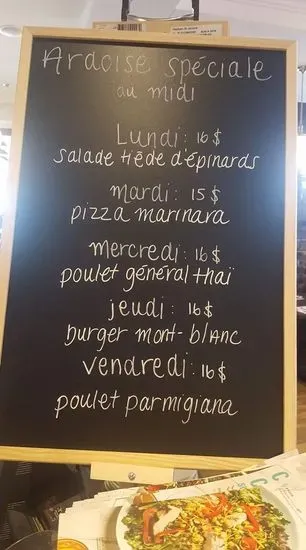 Ardoise spéciale
du midi
Lundi: 16$
salade tiède d'épinards
mardi: 15$
pizza marinara
mercredi: 16$
poulet général thaï
jeudi: 16$
burger mont-blanc
vendredi: 16$
poulet parmigiana